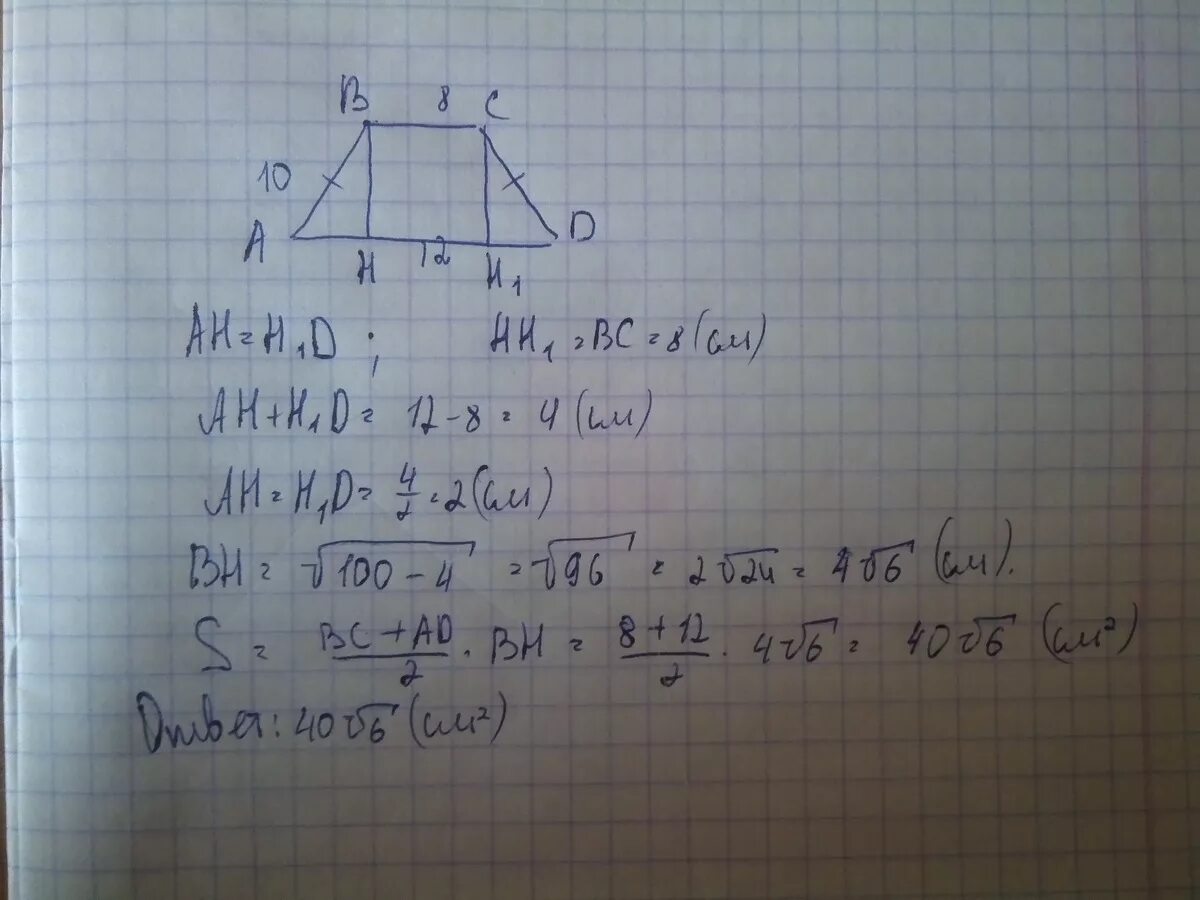 B 8 C
10
A H 12 H₁ D
AH = H₁D ; HH₁ = BC = 8 (см)
AH + H₁D = 12 - 8 = 4 (см)
AH = H₁D = 4/2 = 2 (см)
BH = √(100 - 4) = √96 = 2√24 = 4√6 (см).
S = (BC + AD)/2 · BH = (8 + 12)/2 · 4√6 = 40√6 (см²)
Ответ: 40√6 (см²)